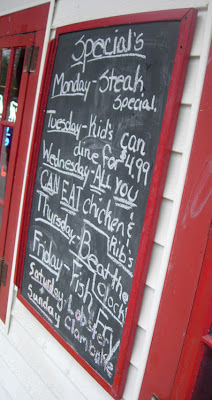 Special's
Monday - Steak
Special.
Tuesday - Kid's can
dine for $4.99
Wednesday - ALL YOU
CAN EAT chicken &
Rib's
Thursday - Beat the
Clock!
Friday - Fish Fry
Saturday - Lobster
Sunday Clambake